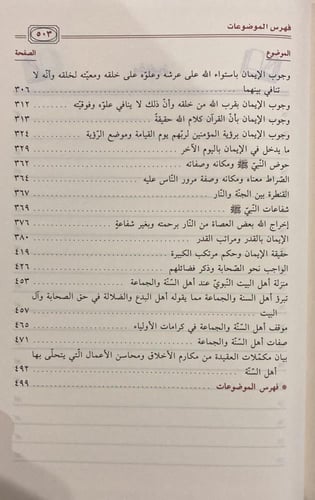 فهرس الموضوعات ٥٠٣
الموضوع الصفحة
وجوب الإيمان باستواء الله على عرشه وعلوّه على خلقه ومعيّته لخلقه وأنّه لا
تنافي بينهما ٣٠٦
وجوب الإيمان بقرب الله من خلقه وأنّ ذلك لا ينافي علوّه وفوقيّته ٣١٢
وجوب الإيمان بأنّ القرآن كلام الله حقيقةً ٣١٣
وجوب الإيمان برؤية المؤمنين لربّهم يوم القيامة وموضع الرّؤية ٣٢٤
ما يدخل في الإيمان باليوم الآخر ٣٢٩
حوض النّبيّ ﷺ ومكانه وصفاته ٣٦٢
الصّراط معناه ومكانه وصفة مرور النّاس عليه ٣٦٤
القنطرة بين الجنّة والنّار ٣٦٧
شفاعات النّبيّ ﷺ ٣٦٩
إخراج الله بعض العصاة من النّار برحمته وبغير شفاعةٍ ٣٧٦
الإيمان بالقدر ومراتب القدر ٣٨٠
حقيقة الإيمان وحكم مرتكب الكبيرة ٤١٩
الواجب نحو الصّحابة وذكر فضائلهم ٤٢٦
منزلة أهل البيت النّبويّ عند أهل السّنّة والجماعة ٤٥٣
تبرؤ أهل السنة والجماعة مما يقوله أهل البدع والضلالة في حق الصحابة وآل
البيت ٤٥٧
موقف أهل السّنّة والجماعة في كرامات الأولياء ٤٦٥
صفات أهل السّنّة والجماعة ٤٧١
بيان مكمّلات العقيدة من مكارم الأخلاق ومحاسن الأعمال الّتي يتحلّى بها
أهل السّنّة ٤٩٢
* فهرس الموضوعات ٤٩٩